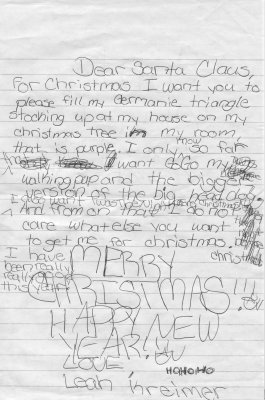 Dear Santa Claus,
For Christmas I want you to
please fill my Germanie triangle
stocking up at my house on my
christmas tree in my room,
that is purple. I only so far
want my
walking pup and the bigger
version of the big
I also want
And from on that I do not
care what else you want
to get me for christmas.
I have
been really
really
this year!
MERRY
CHRISTMAS!!!
HAPPY NEW
YEAR!
LOVE,
HOHOHO
Leah Kreimer